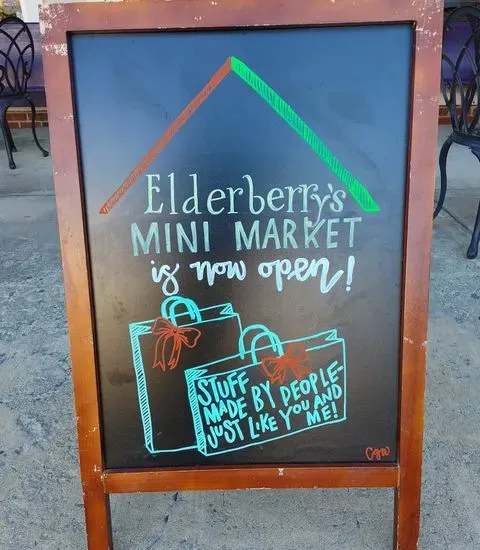 Elderberry's
MINI MARKET
is now open!
STUFF
MADE BY PEOPLE-
JUST LIKE YOU AND
ME!